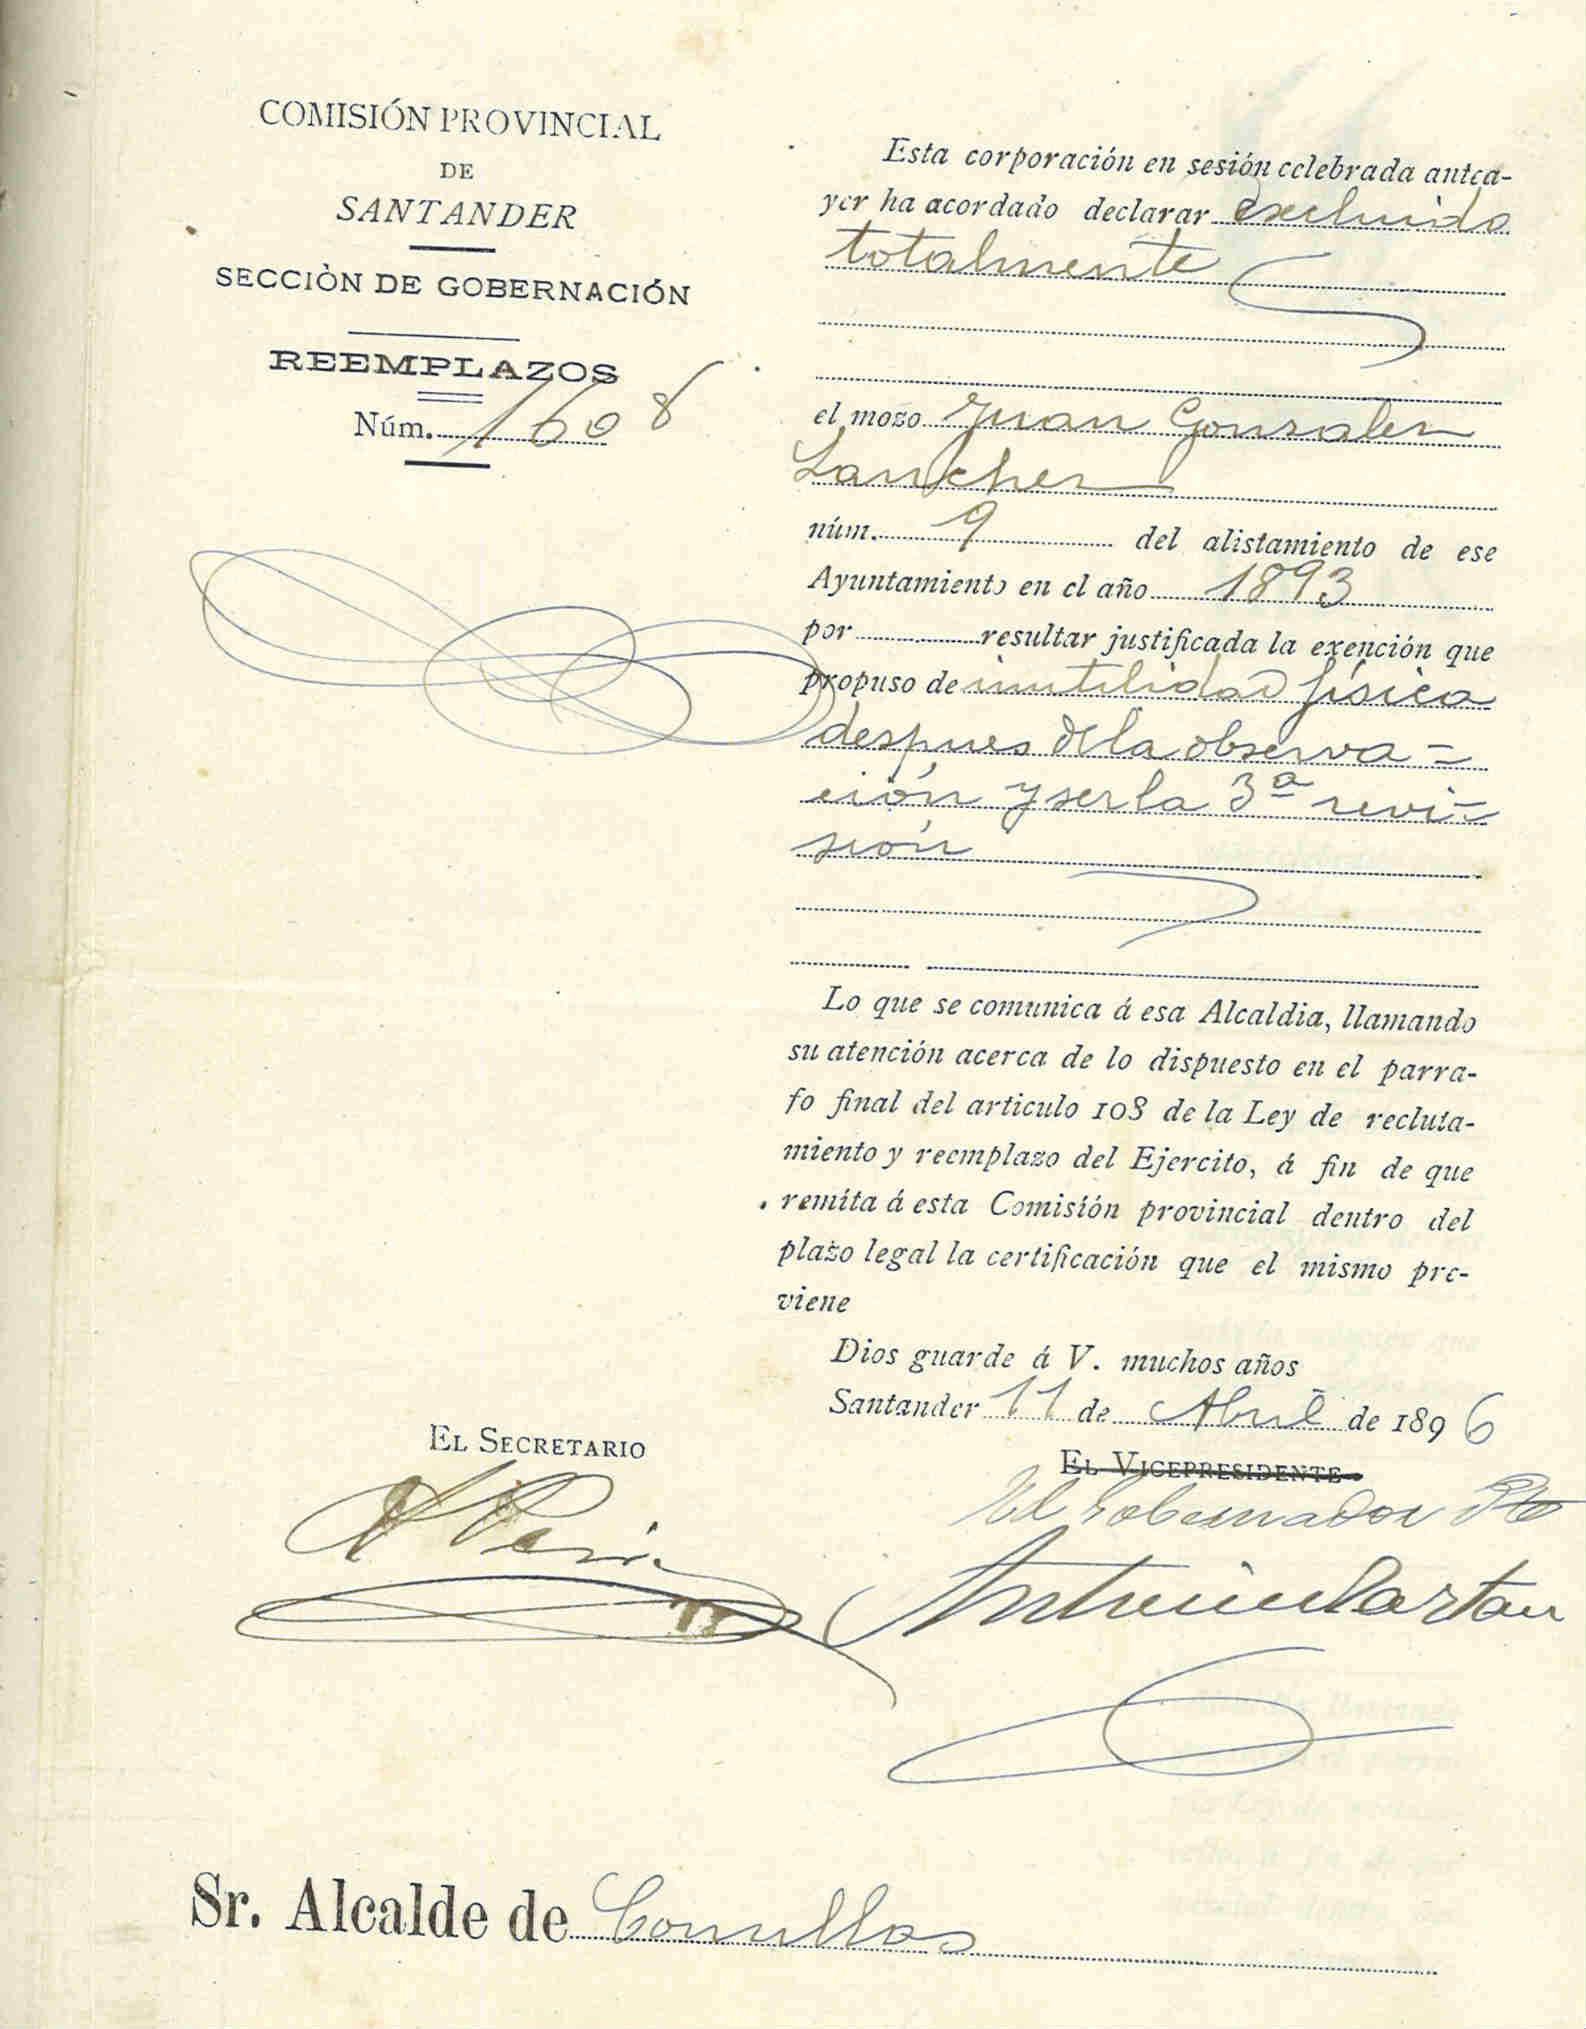 COMISIÓN PROVINCIAL
DE
SANTANDER
SECCIÒN DE GOBERNACIÓN
REEMPLAZOS
Núm. 1608
Esta corporación en sesión celebrada antea-
yer ha acordado declarar excluido
totalmente
el mozo Juan Gonzalez
Sanchez
núm. 9 del alistamiento de ese
Ayuntamiento en el año 1893
por resultar justificada la exención que
propuso de inutilidad física
despues de la observa-
ción y ser la 3ª revi-
sión
Lo que se comunica á esa Alcaldia, llamando
su atención acerca de lo dispuesto en el parra-
fo final del articulo 108 de la Ley de recluta-
miento y reemplazo del Ejercito, á fin de que
remita á esta Comisión provincial dentro del
plazo legal la certificación que el mismo pre-
viene
Dios guarde á V. muchos años
Santander 11 de Abril de 1896
EL SECRETARIO
EL VICEPRESIDENTE
El Gobernador Pte
Sr. Alcalde de Comillas